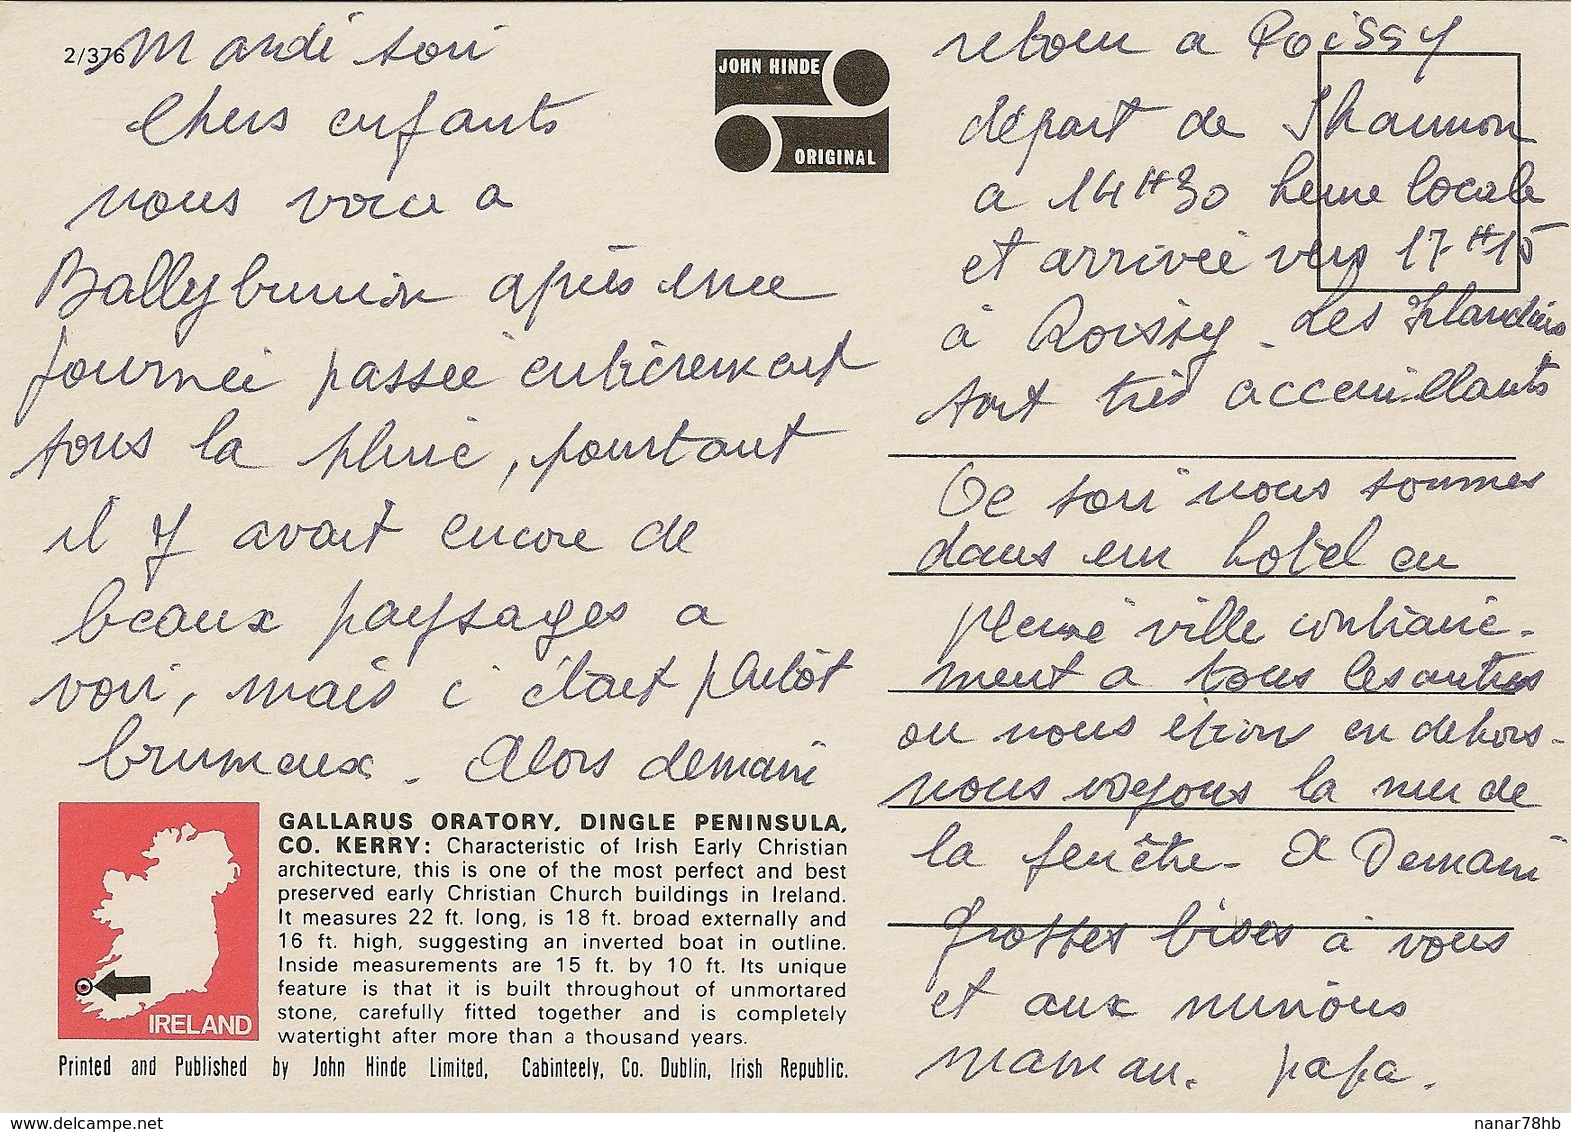 2/376
Mardi soir
Chers enfants
nous voici a
Ballybunion après une
journée passée entièrement
sous la pluie, pourtant
il y avait encore de
beaux paysages a
voir, mais c'était plutôt
brumeux. Alors demain
JOHN HINDE
ORIGINAL
retour a Roissy
départ de Shannon
a 14H30 heure locale
et arrivée vers 17H15
à Roissy. Les Irlandais
sont très acceuillants
Ce soir nous sommes
dans un hotel en
pleine ville contraire-
ment a tous les autres
ou nous étions en dehors.
nous voyons la mer de
la fenêtre - A Demain
Grosses bises à vous
et aux minous
maman. papa.
GALLARUS ORATORY, DINGLE PENINSULA,
CO. KERRY: Characteristic of Irish Early Christian
architecture, this is one of the most perfect and best
preserved early Christian Church buildings in Ireland.
It measures 22 ft. long, is 18 ft. broad externally and
16 ft. high, suggesting an inverted boat in outline.
Inside measurements are 15 ft. by 10 ft. Its unique
feature is that it is built throughout of unmortared
stone, carefully fitted together and is completely
watertight after more than a thousand years.
IRELAND
Printed and Published by John Hinde Limited, Cabinteely, Co. Dublin, Irish Republic.
nanar78hb